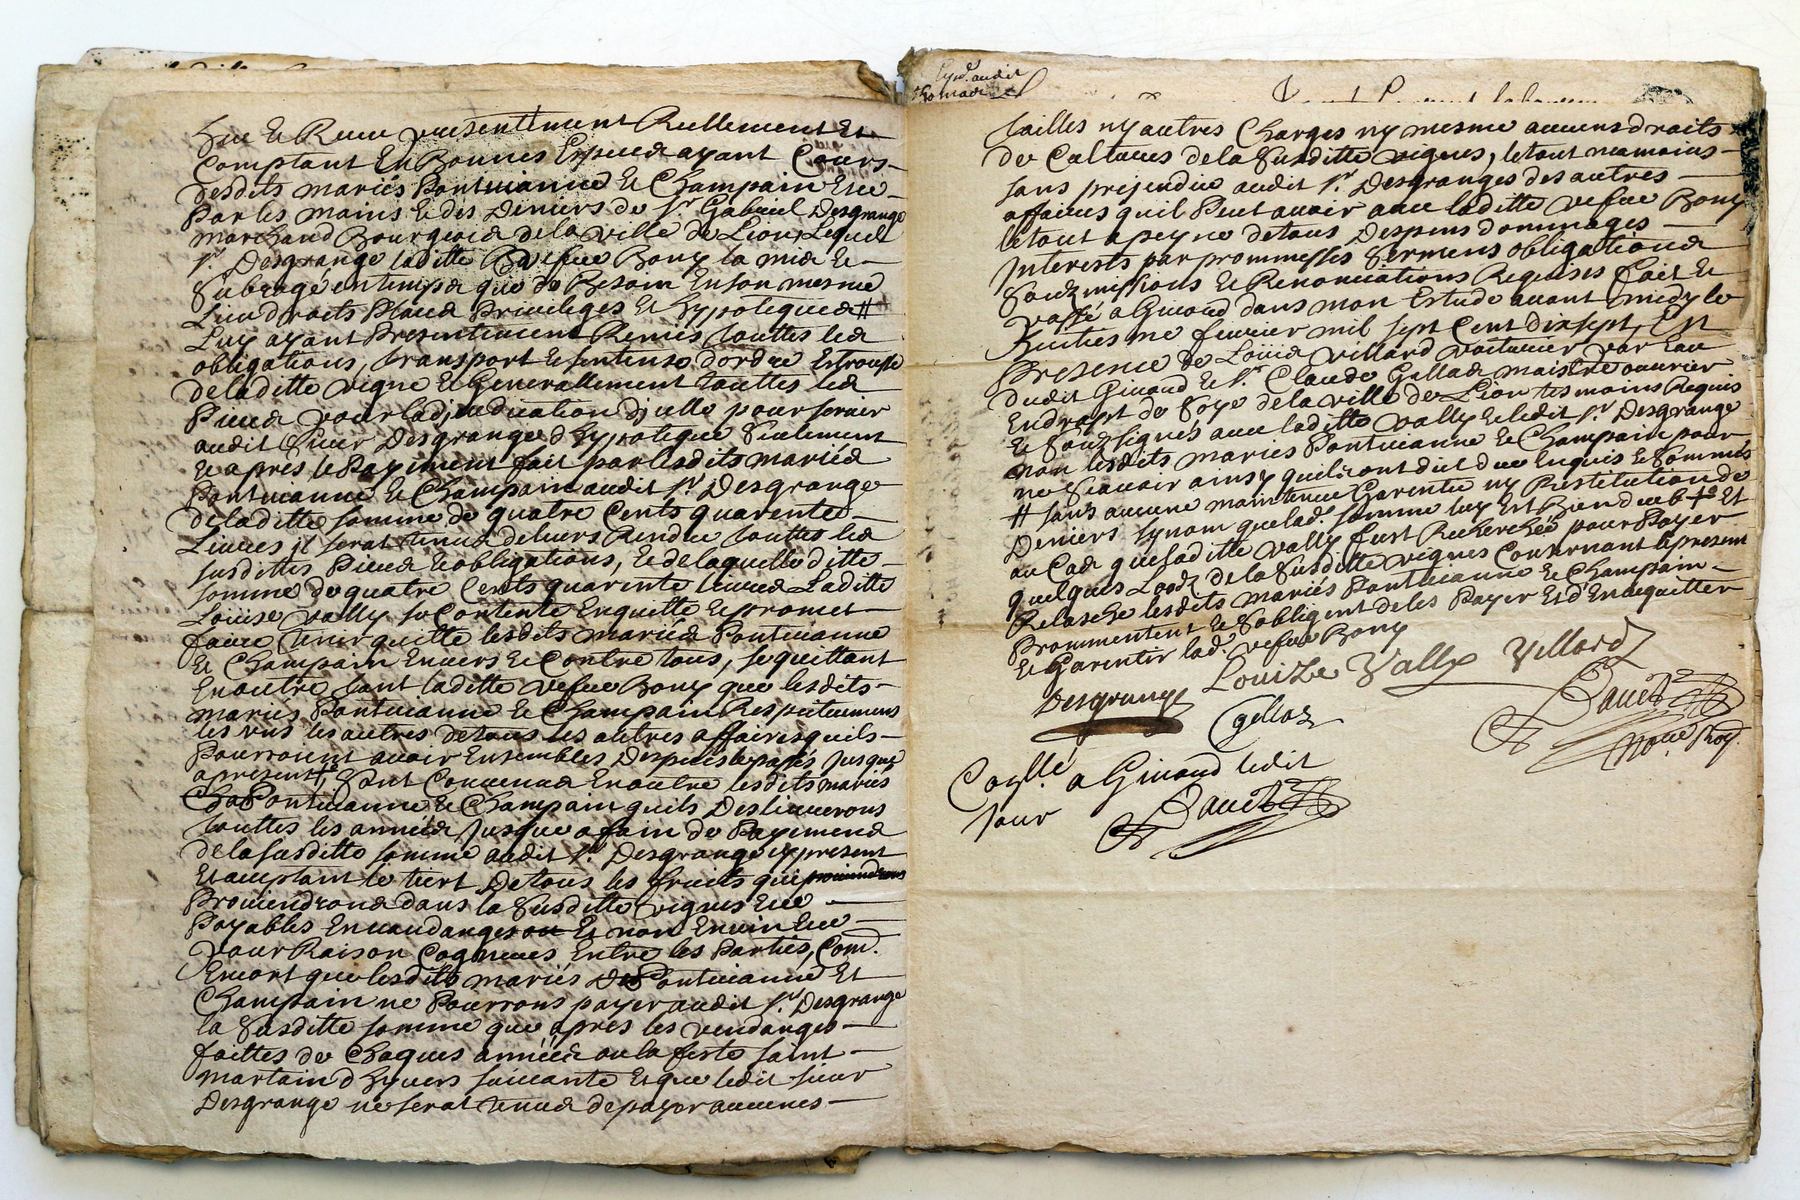 heu et Receu presentement Reellement et
Comptant En Bonnes Especes ayant Cours
desdits mariés Pontuianne et Champain et ce
Par les mains et des Deniers de Sr Gabriel Desgrange
marchand Bourgeois de la ville de Lion, Lequel
Sr Desgrange laditte vefue Bony la mis et
Subrogé en temps que de Besoin En son mesme
Lieu droits Place Privileges et hypoteques #
Luy ayant Presentement Remis touttes les
obligations, transport et sentense d'ordre Estrousse
de laditte vigne et Generallement touttes les
Pieces pour ladjudication djcelle pour seruir
audit sieur Desgrange dhypoteque seulement
et apres le Payement fait par lesdits mariés
Pontuianne et Champain audit Sr Desgrange
de laditte somme de quatre Cents quarente
Liures il serat tenus de leurs Rendre touttes les
susdittes Pieces et obligations, et de laquelle ditte
somme de quatre Cents quarente liures Laditte
Loüise Vally se Contente En quitte et promet
faire tenir quitte lesdits mariés Pontuianne
et Champain Enuers et Contre tous, se quittant
En outre tant laditte vefue Bony que lesdits
mariés Pontuianne et Champain Respectiuement
les vns les autres de tous les autres affaires quils
Pourroient auoir Ensembles Despuis le passé Jusques
apresent, Sont Conuenus En outre lesdits mariés
Pontuianne et Champain quils Desliurerons
touttes les années Jusque a fain de Payement
de la susditte somme audit Sr Desgrange cy present
Et acceptant le tiert De tous les fruits qui
Prouiendrons dans la susditte vignes Et ce
Payables En vandanges Et non En vin Et ce
Pour Raison Cognues Entre les Parties, Com.
Encort que lesdits mariés Pontuianne Et
Champain ne Pourrons payer audit Sr Desgrange
la susditte somme que apres les vendanges
faittes de Chaques années ou la feste saint
martain dhyuers suiuante Et que ledit sieur
Desgrange ne serat tenus de payer aucunes
tailles ny autres Charges ny mesme aucuns droits
de Cultures de la susditte vignes, le tout neamoins
sans prejendice audit Sr Desgranges des autres
affaires quil Peut auoir auec laditte vefue Bony
le tout a peyne de tous Despens dommages
Jnterests par prommesses sermens obligations
Soubzmissions et Renonciations Requises fait et
Passé a Giuord dans mon Estude auant midy le
huitiesme feurier mil sept Cent dixsept, En
Presence de Loüis villard voiturier par Eau
dudit Giuord et Sr Claude Gellas maistre ouurier
En drapt de Soye de la ville de Lion tesmoins Requis
et Soubzsignés auec laditte Vally et ledit Sr Desgrange
non lesdits mariés Pontuianne et Champain pour
ne Scauoir ainsy quils ont dit de ce Enquis et Sommés
# sans aucune maintenue Garentie ny Restitution de
Deniers synom que lad. somme luy Est Bien deub Et
au Cas que laditte Vally fust Recherchée pour Payer
quelques Loodz de la susditte vignes Concernant le present
Relasche lesdits mariés Pontuianne et Champain
Prommentent et Sobligent de les Payer Et d'En acquitter
et Garentir lad. vefue Bony
Louize Vally Villard
Desgrange Gellas
Dauet
Noue Roy.
Coplle a Giuord ledit
Jour
Dauet